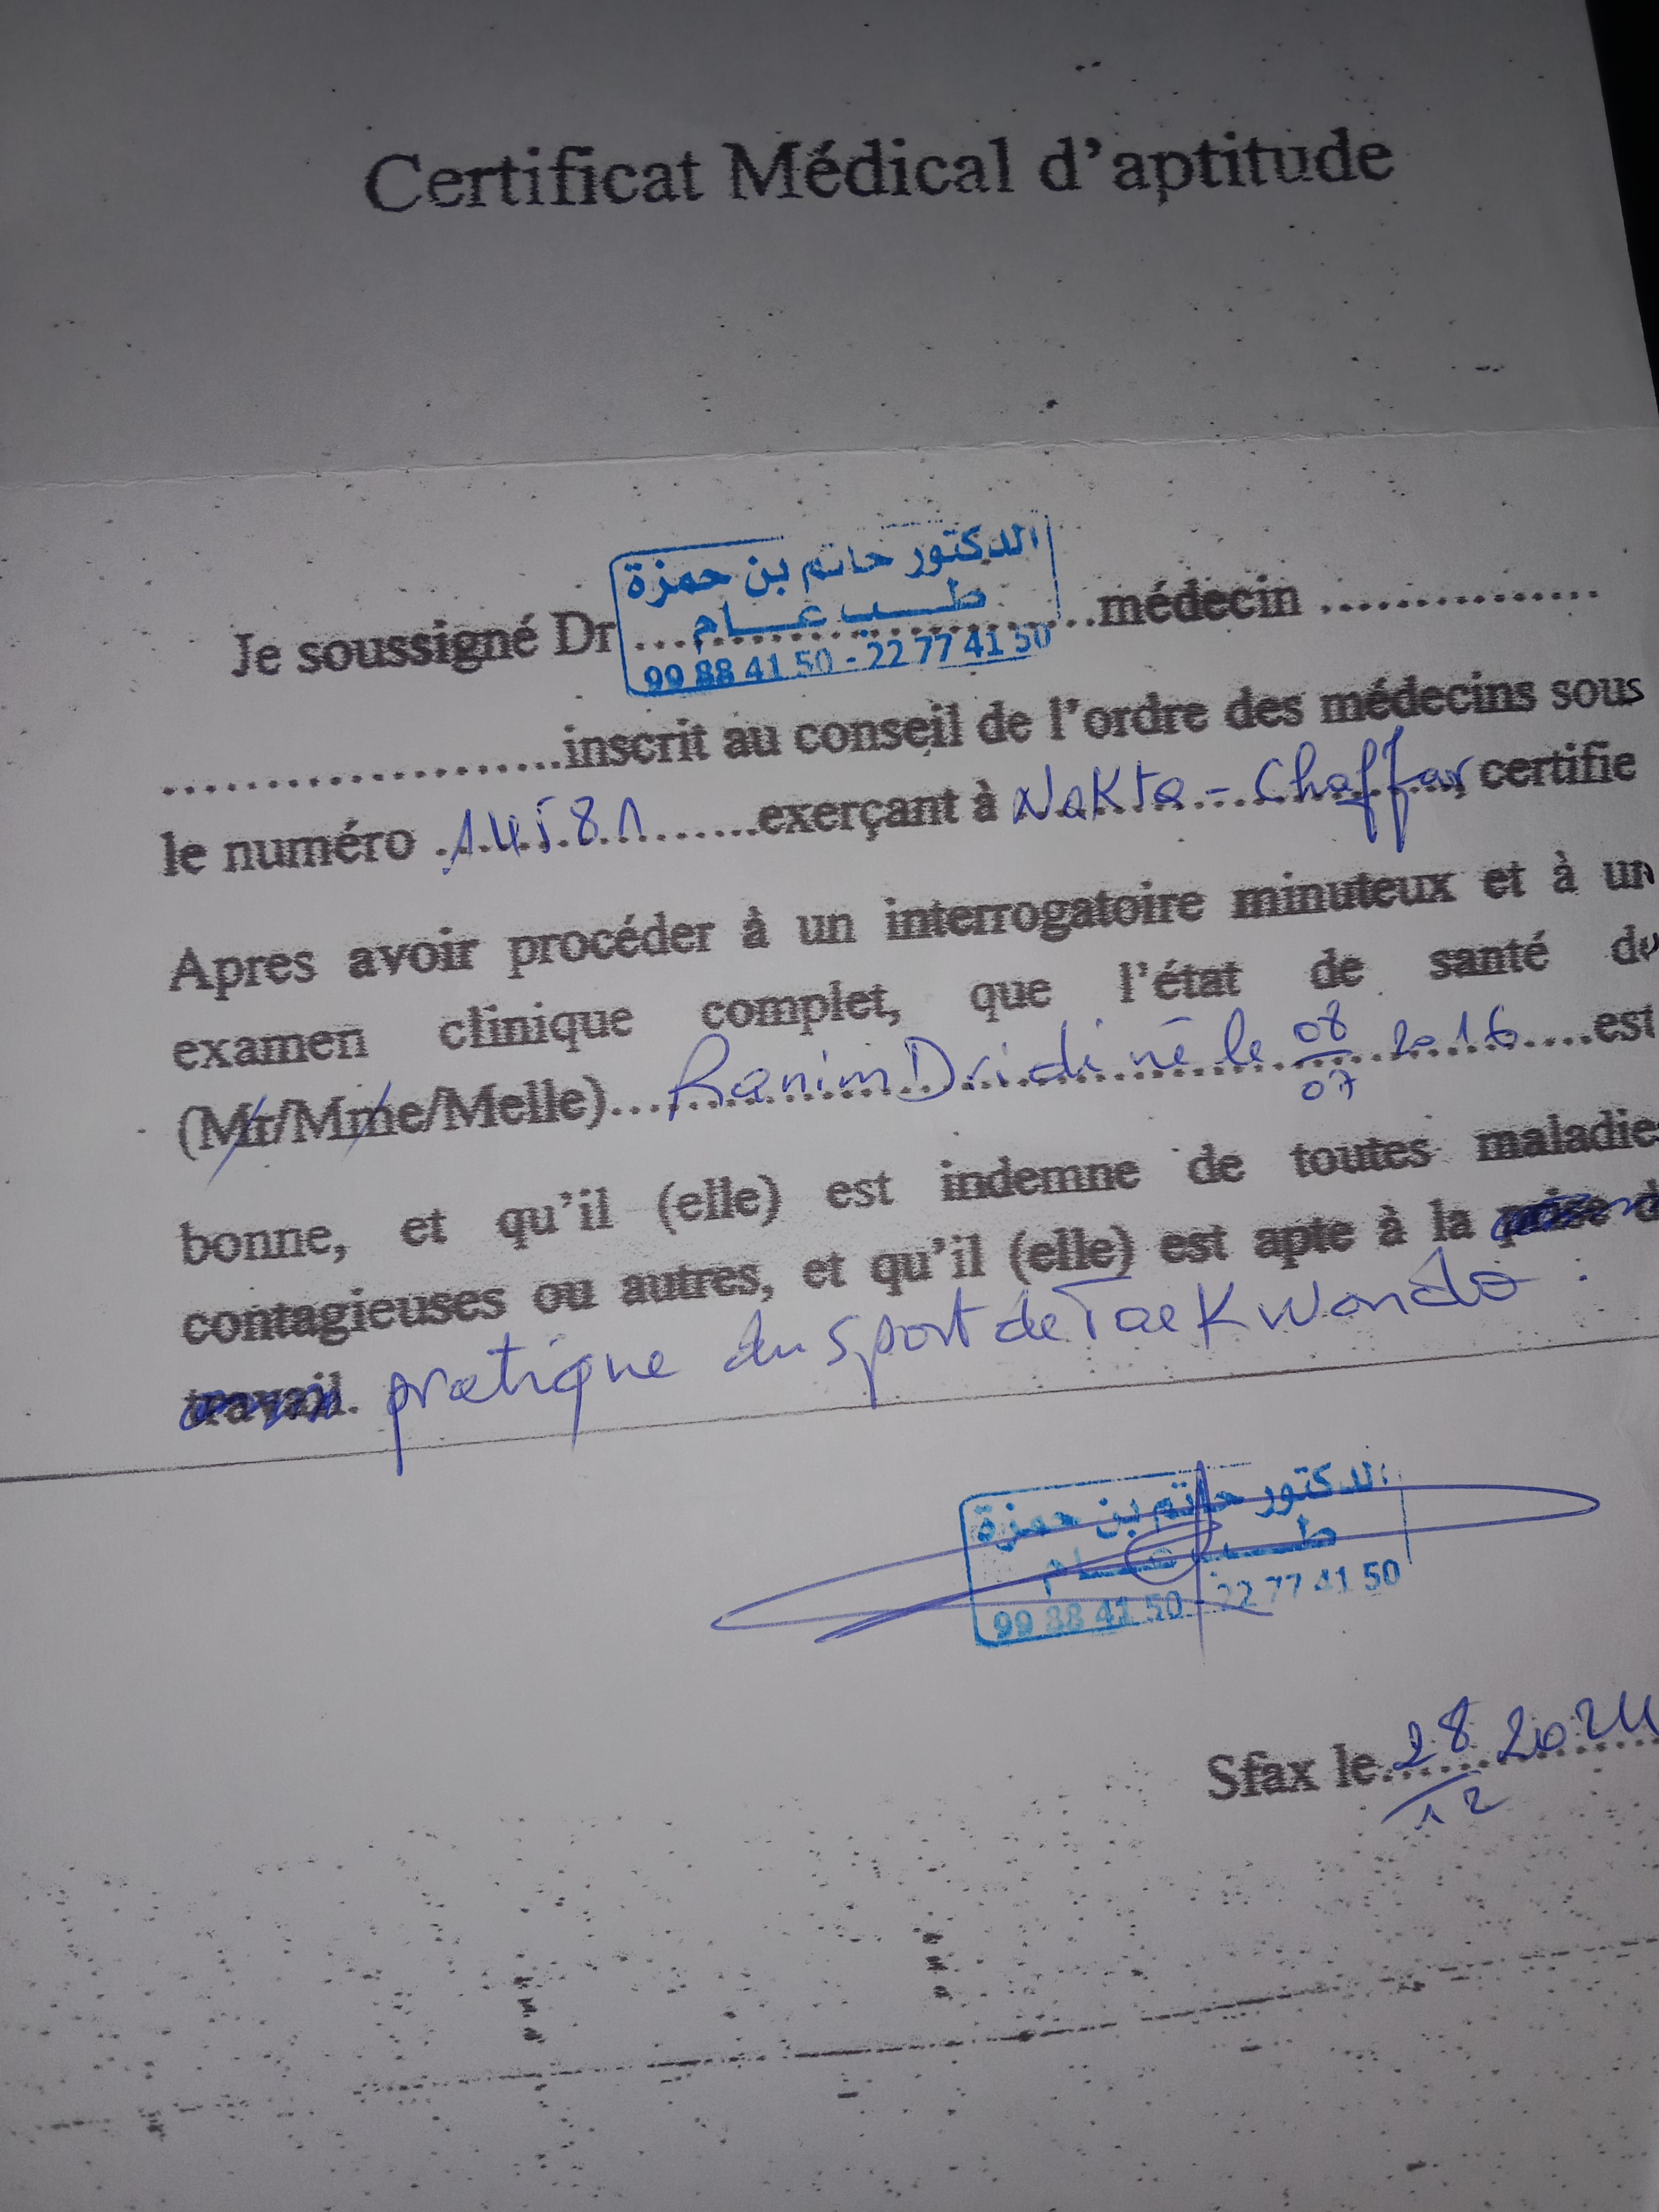 Certificat Médical d'aptitude
الدكتور حاتم بن حمزة
طب عام
99 88 41 50 - 22 77 41 50
Je soussigné Dr ........................médecin ...............
....................inscrit au conseil de l'ordre des médecins sous
le numéro 14581 exerçant à Nakta - Chaffar, certifie
Apres avoir procéder à un interrogatoire minuteux et à un
examen clinique complet, que l'état de santé de
(Mr/Mme/Melle) Ranim Dridi né le 08/07 2016 est
bonne, et qu'il (elle) est indemne de toutes maladies
contagieuses ou autres, et qu'il (elle) est apte à la prise d
travail. pratique du sport de TaeKwondo
الدكتور حاتم بن حمزة
طب عام
99 88 41 50 - 22 77 41 50
Sfax le 28/12 2024